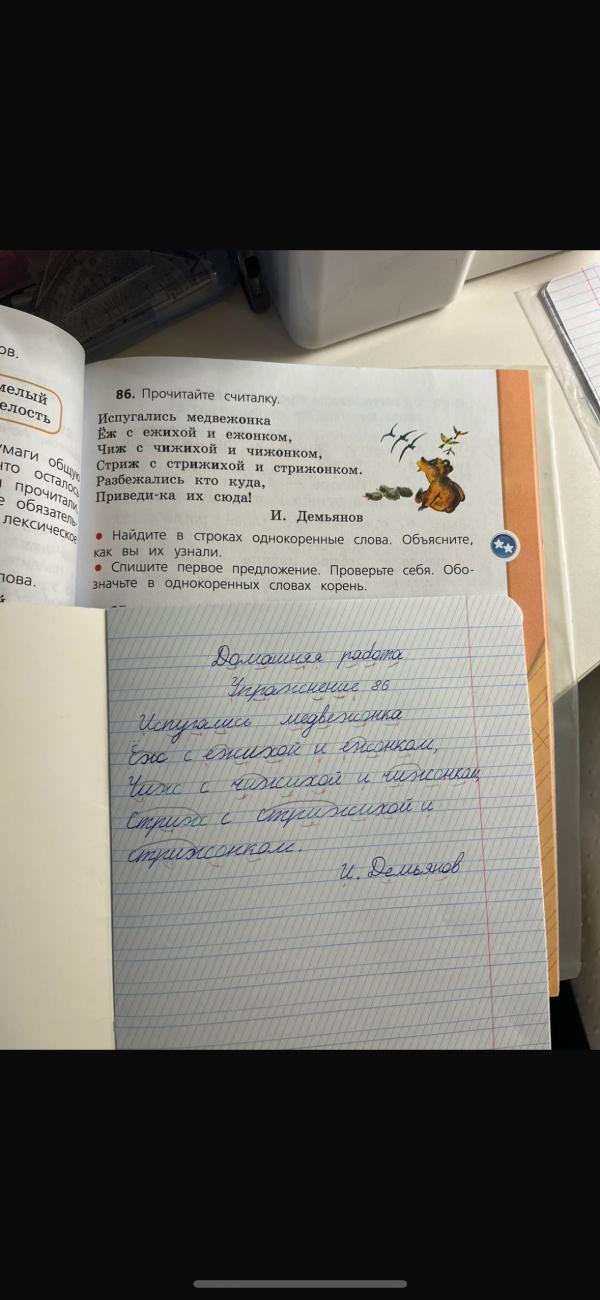 ов.
мелый
елость
умаги общую
что осталось
прочитали
е обязатель-
лексическое
лова.
86. Прочитайте считалку.
Испугались медвежонка
Ёж с ежихой и ежонком,
Чиж с чижихой и чижонком,
Стриж с стрижихой и стрижонком.
Разбежались кто куда,
Приведи-ка их сюда!
И. Демьянов
• Найдите в строках однокоренные слова. Объясните,
как вы их узнали.
• Спишите первое предложение. Проверьте себя. Обо-
значьте в однокоренных словах корень.
Домашняя работа
Упражнение 86
Испугались медвежонка
Ёж с ежихой и ежонком,
Чиж с чижихой и чижонком
Стриж с стрижихой и
стрижонком.
И. Демьянов